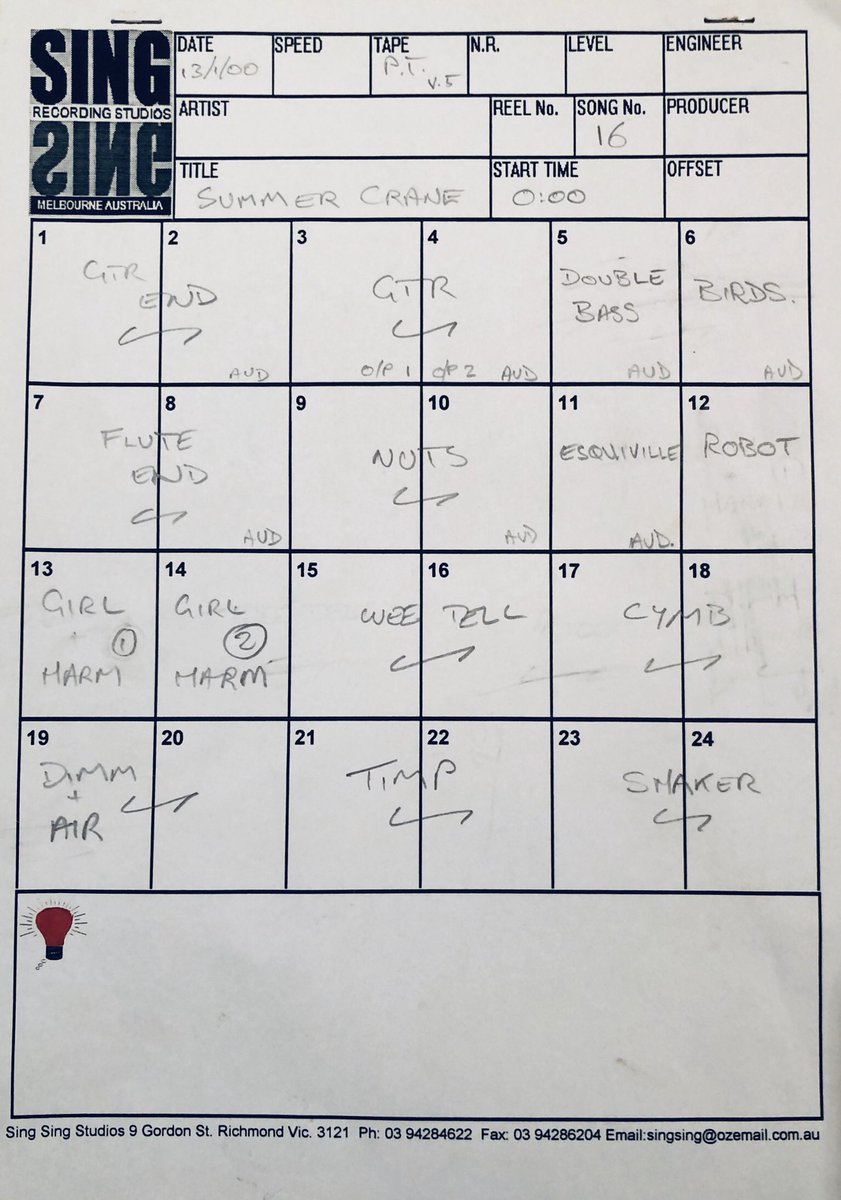 SING
RECORDING STUDIOS
SING
MELBOURNE AUSTRALIA
DATE SPEED TAPE N.R. LEVEL ENGINEER
13/1/00 P.T. V.5
ARTIST REEL No. SONG No. PRODUCER
16
TITLE START TIME OFFSET
SUMMER CRANE 0:00
1 2 3 4 5 6
GTR END GTR DOUBLE BASS BIRDS.
AUD O/P 1 O/P 2 AUD AUD AUD
7 8 9 10 11 12
FLUTE END NUTS ESQUIVILLE ROBOT
AUD AUD AUD.
13 14 15 16 17 18
GIRL 1 HARM GIRL 2 HARM WEE CYMB
19 20 21 22 23 24
DIMM + AIR TIMP SHAKER
Sing Sing Studios 9 Gordon St. Richmond Vic. 3121 Ph: 03 94284622 Fax: 03 94286204 Email:singsing@ozemail.com.au